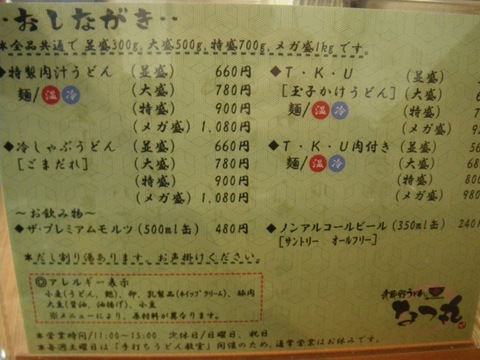 ‥おしながき‥
*全品共通で 並盛300g,大盛500g,特盛700g,メガ盛1kg です。
◆特製肉汁うどん (並盛) 660円
麺/温 冷 (大盛) 780円
(特盛) 900円
(メガ盛) 1,080円
◆冷しゃぶうどん (並盛) 660円
[ごまだれ] (大盛) 780円
(特盛) 900円
(メガ盛) 1,080円
◆T・K・U (並盛)
[玉子かけうどん] (大盛)
麺/温 冷 (特盛)
(メガ盛)
◆T・K・U肉付き (並盛)
麺/温 冷 (大盛)
(特盛)
(メガ盛)
～お飲み物～
◆ザ・プレミアムモルツ (500ml缶) 480円
◆ノンアルコールビール (350ml缶) 240
[サントリー オールフリー]
*だし割り湯あります。お声掛けください。
◎アレルギー表示
小麦(うどん、麹)、卵、乳製品(ホイップクリーム)、豚肉
大豆(醤油、油揚げ)、小麦
※メニューにより、原材料が異なります。
*営業時間/11:00～15:00 定休日/日曜日、祝日
*毎週土曜日は「手打ちうどん教室」開催のため、通常営業はお休みです。